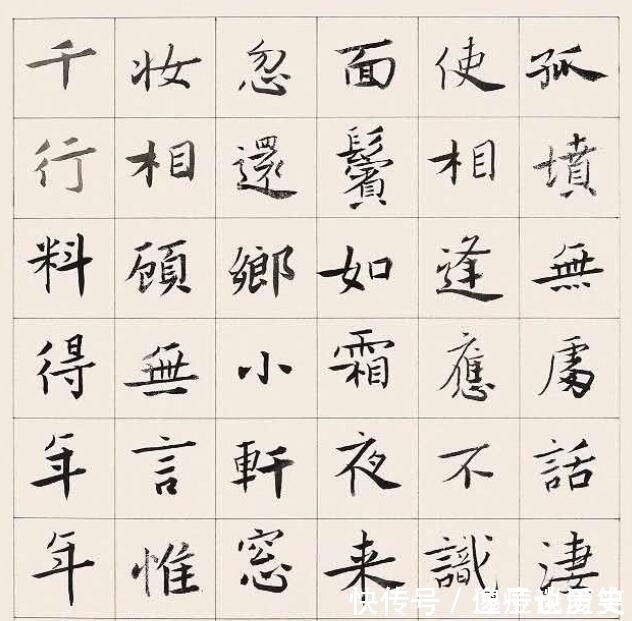 孤墳無處話淒
使相逢應不識
面鬢如霜夜来
忽還鄉小軒窓
妝相顧無言惟
千行料得年年
快传号 /